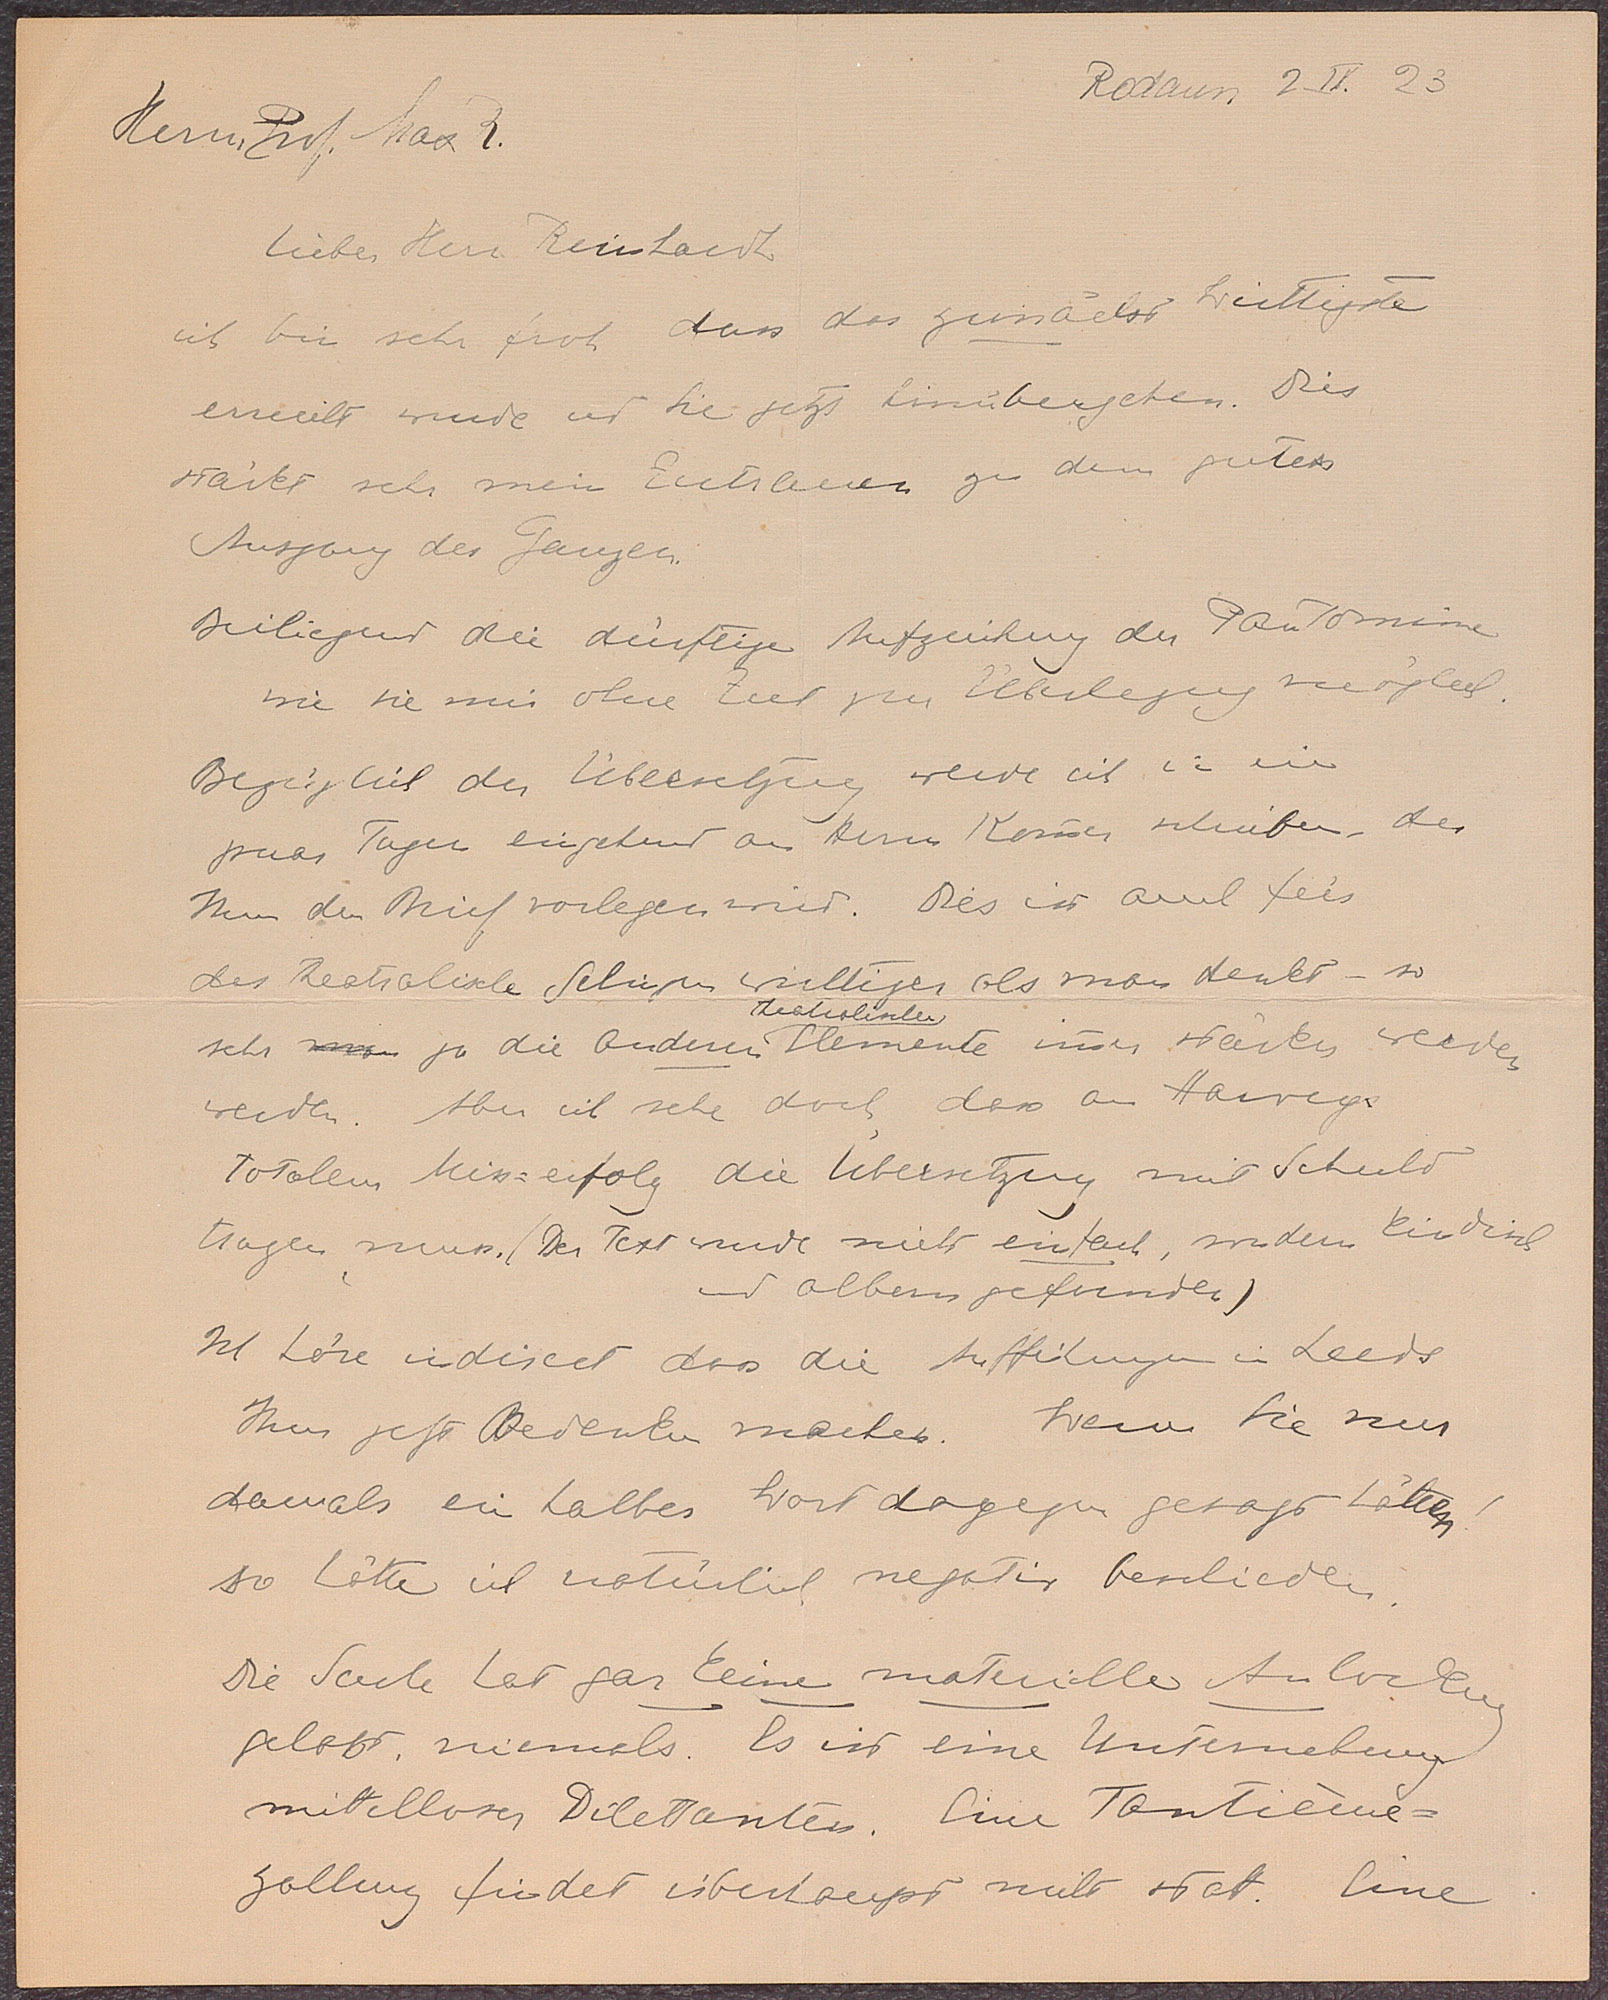 Rodaun 2 IV. 23
Herrn Prof. Max R.
Lieber Herr Reinhardt
ich bin sehr froh dass das zunächst Wichtigste
erreicht wurde und Sie jetzt hinübergehen. Dies
stärkt sehr mein Zutrauen zu dem guten
Ausgang des Ganzen.
Beiliegend die dürftige Aufzeichnung der Pantomime
wie sie mir ohne Zeit zur Überlegung möglich.
Bezüglich der Übersetzung werde ich in ein
paar Tagen eingehend an Herrn Kom̅er schreiben, der
Ihnen den Brief vorlegen wird. Dies ist auch fürs
das theatralische Gelingen wichtiger als man denkt – so
sehr ja die anderen theatralischen Elemente im̅er stärker werden
werden. Aber ich sehe doch, dass an Harveys
totalem Miss=erfolg die Übersetzung mit Schuld
tragen muss. (Der Text wurde nicht einfach, sondern kindisch
und albern gefunden)
Ich höre indirect dass die Aufführungen in Leeds
Ihnen jetzt Bedenken machen. Wenn Sie nur
damals ein halbes Wort dagegen gesagt hätten!
so hätte ich natürlich negativ beschieden.
Die Sache hat gar keine materielle Anlockung
gehabt, niemals. Es ist eine Unternehmung
mittelloser Dilettanten. Eine Tantième=
zallung findet überhaupt nicht statt. Eine